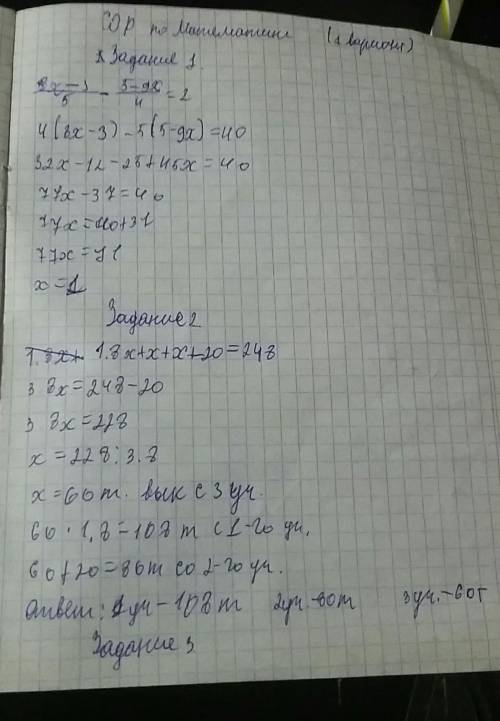 СОР по Математике (1 вариант)
Задание 1.
8x-3/5 - 5-9x/4 = 2
4(8x-3)-5(5-9x)=40
32x-12-25+45x=40
77x-37=40
77x=40+37
77x=77
x=1
Задание 2
1.8x+ 1.8x+x+x+20=248
3 8x=248-20
3 8x=228
x=228:3.8
x=60т. вык с 3 уч.
60·1,8=108т с 1-го уч.
60+20=80т со 2-го уч.
Ответ: 1уч-108т 2уч.-80т 3уч.-60т
Задание 3